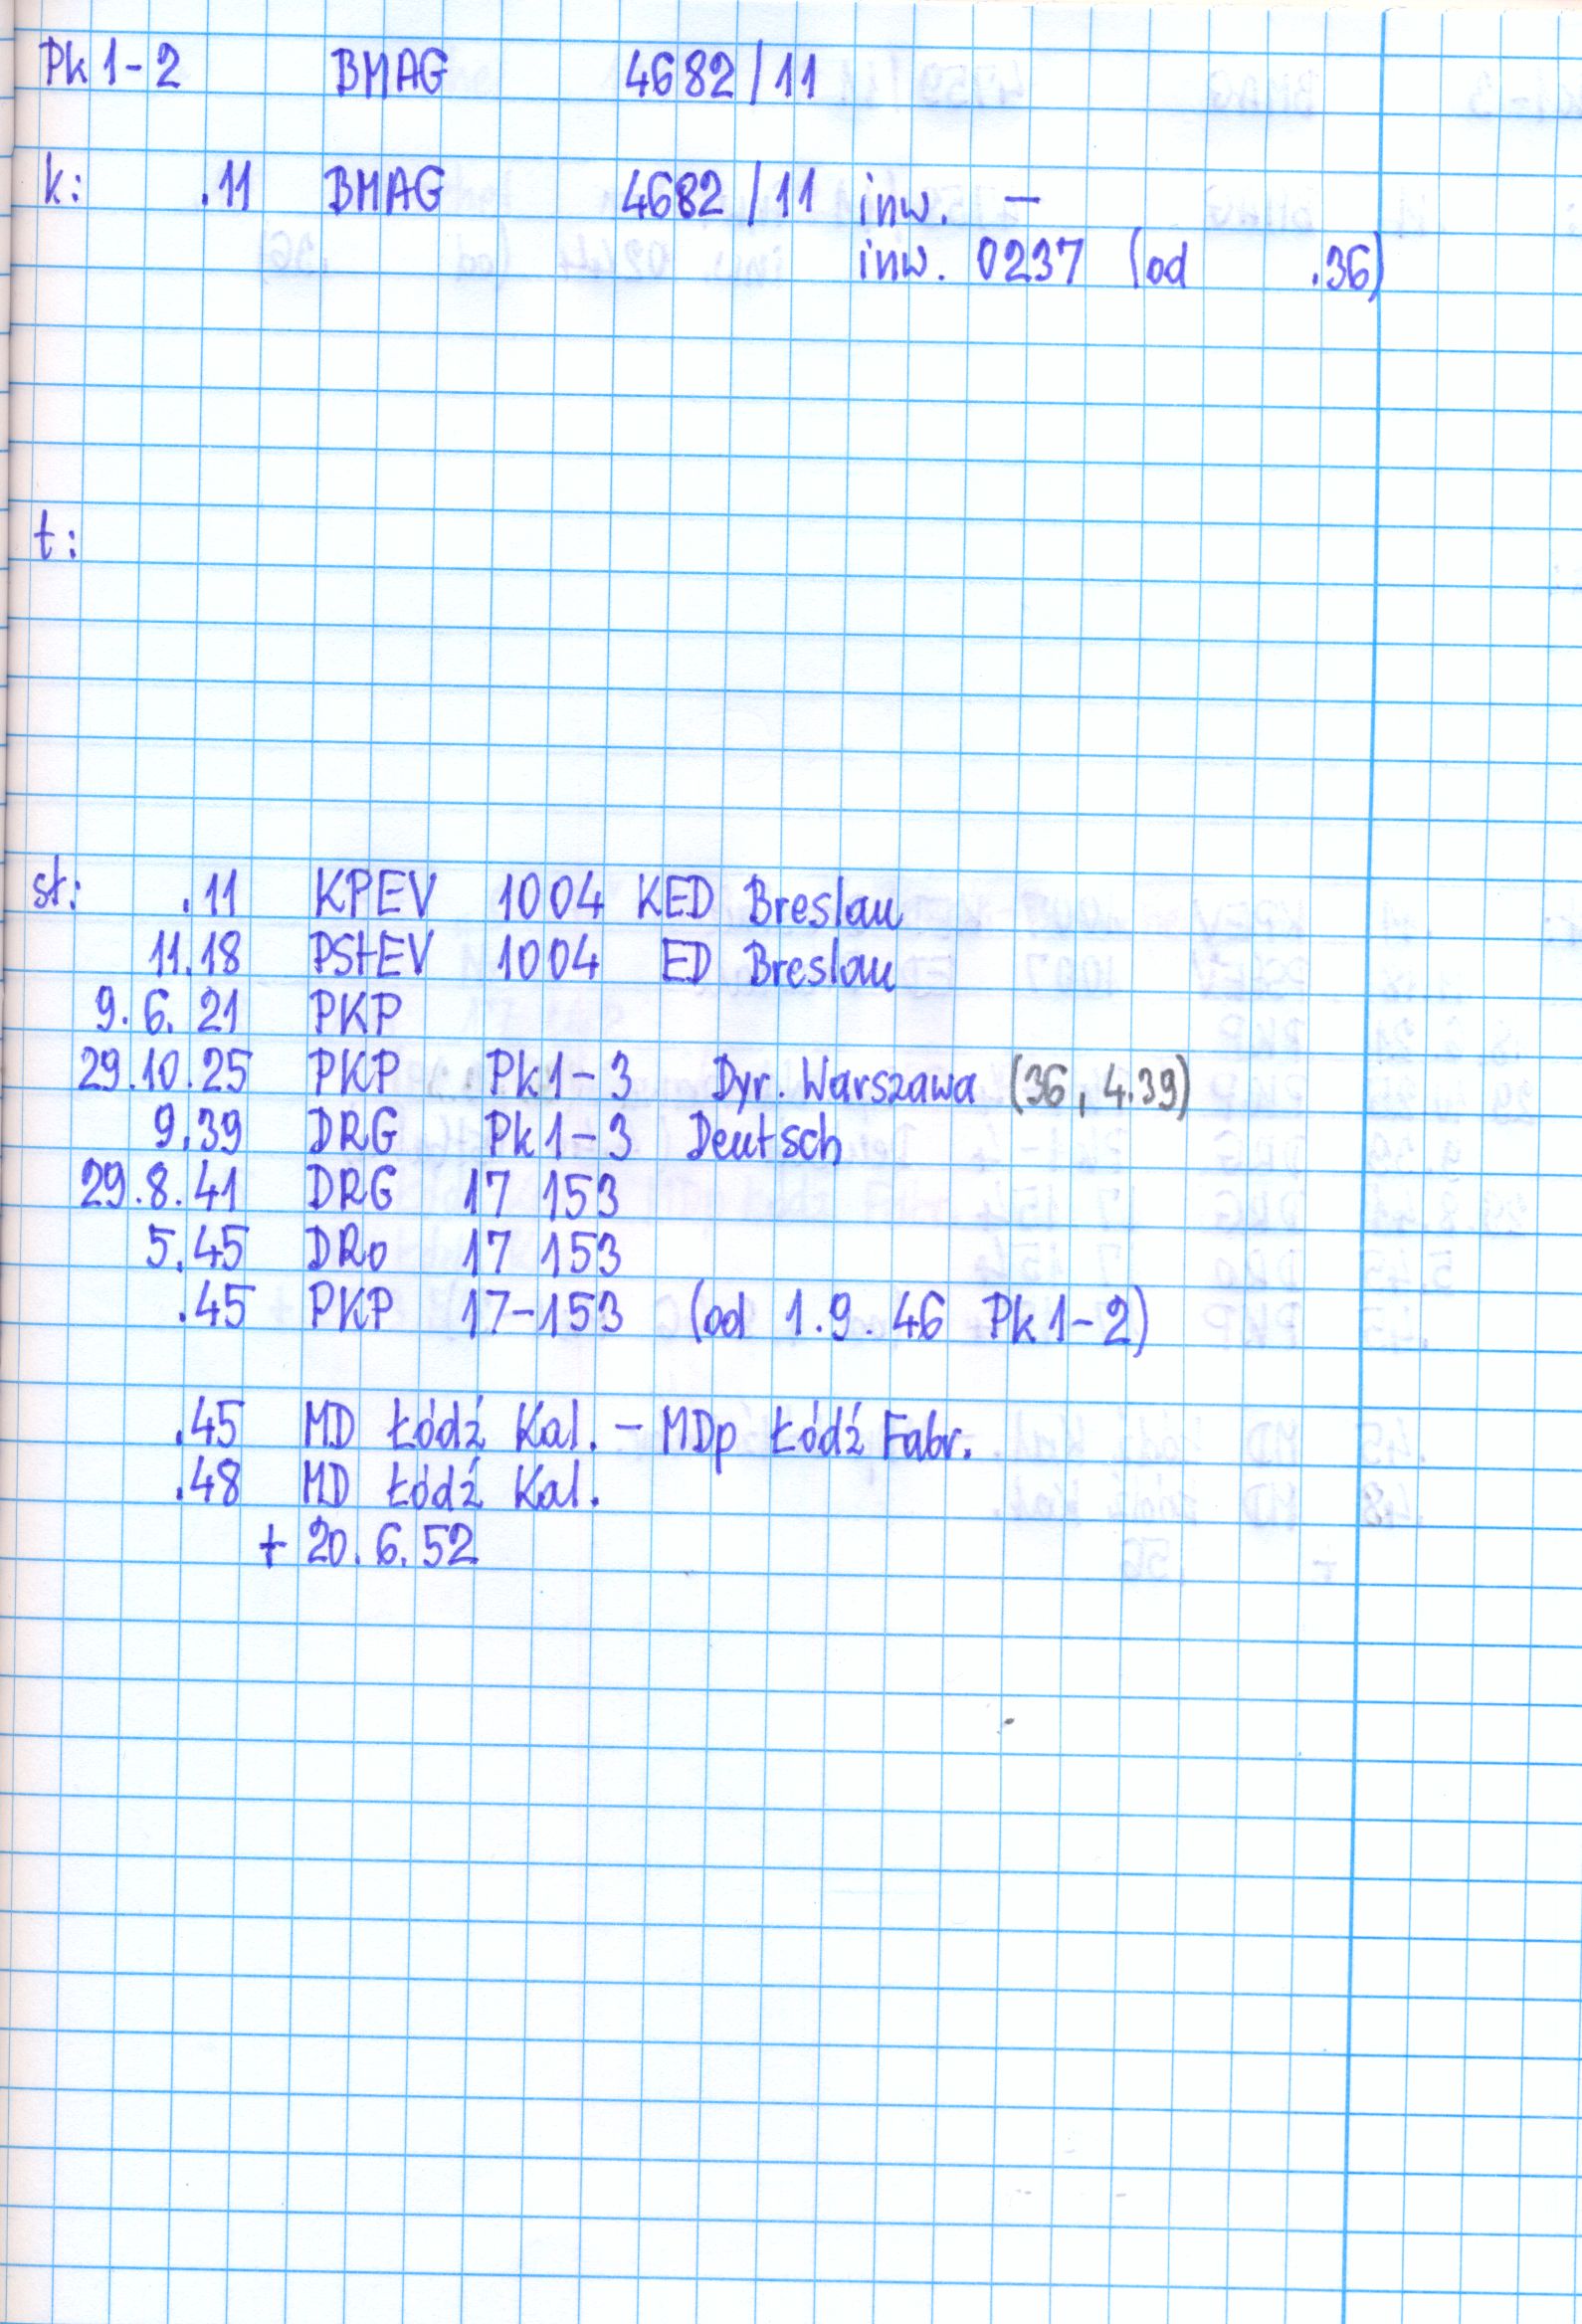 Pk1-2 BMAG 4682/11
k: .11 BMAG 4682/11 inw. –
inw. 0237 (od .36)
t:
st: .11 KPEV 1004 KED Breslau
11.18 PStEV 1004 ED Breslau
9.6.21 PKP
29.10.25 PKP Pk1-3 Dyr. Warszawa (36, 4.39)
9.39 DRG Pk1-3 Deutsch
29.8.41 DRG 17 153
5.45 DRo 17 153
.45 PKP 17-153 (od 1.9.46 Pk1-2)
.45 MD Łódź Kal. – MDp Łódź Fabr.
.48 MD Łódź Kal.
+ 20.6.52